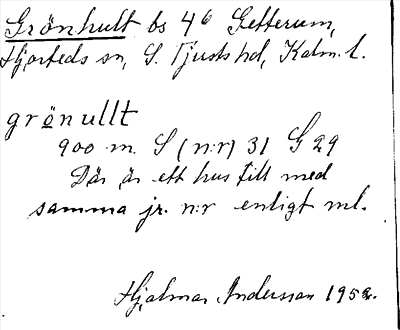 Grönhult bs 4⁶ Getterum,
Hjorteds sn, S. Tjusts hd, Kalm. l.
grönullt
900 m. S (n:r) 31 G 29
Där är ett hus till med
samma jr. n:r enligt ml.
Hjalmar Andersson 1952.